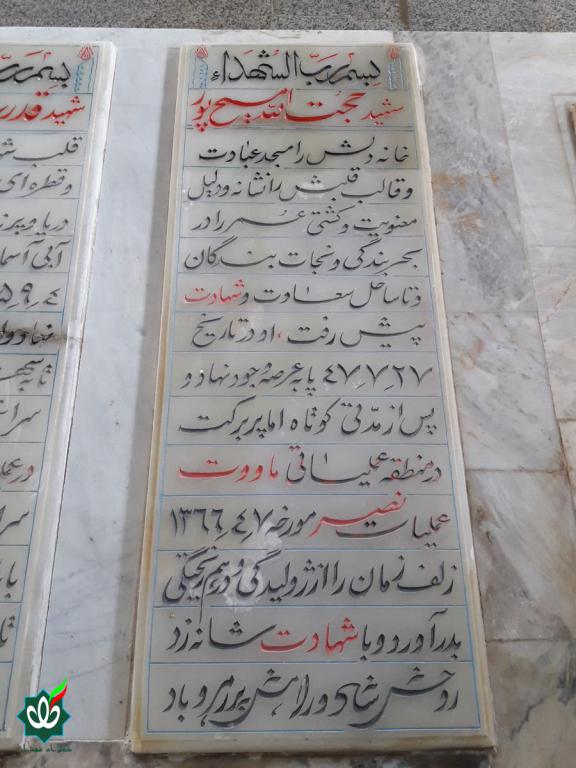 بسم رب الشهداء
شهید حجت الله مسیح پور
خانه دلش را مسجد عبادت
و قالب قلبش را نشانه و دلیل
معنویت و کشتی عمر را در
بحر بندگی و نجات بندگان
و تا ساحل سعادت و شهادت
پیش رفت، او در تاریخ
۴۷٫۷٫۲۷ پا به عرصه وجود نهاد و
پس از مدتی کوتاه اما پر برکت
در منطقه عملیاتی ماووت
عملیات نصیر مورخه ۱۳۶۶٫۴٫۷
زلف زمان را از ژولیدگی و درهم ریختگی
بدر آورد و با شهادت شانه زد
روحش شاد و راهش پر رهرو باد
بسم رب
شهید قدر
قلب
و قطره ای
دریا
آبی آسما
۵٫۹٫۴
نهاد و
سرا
در عملیا
سرا